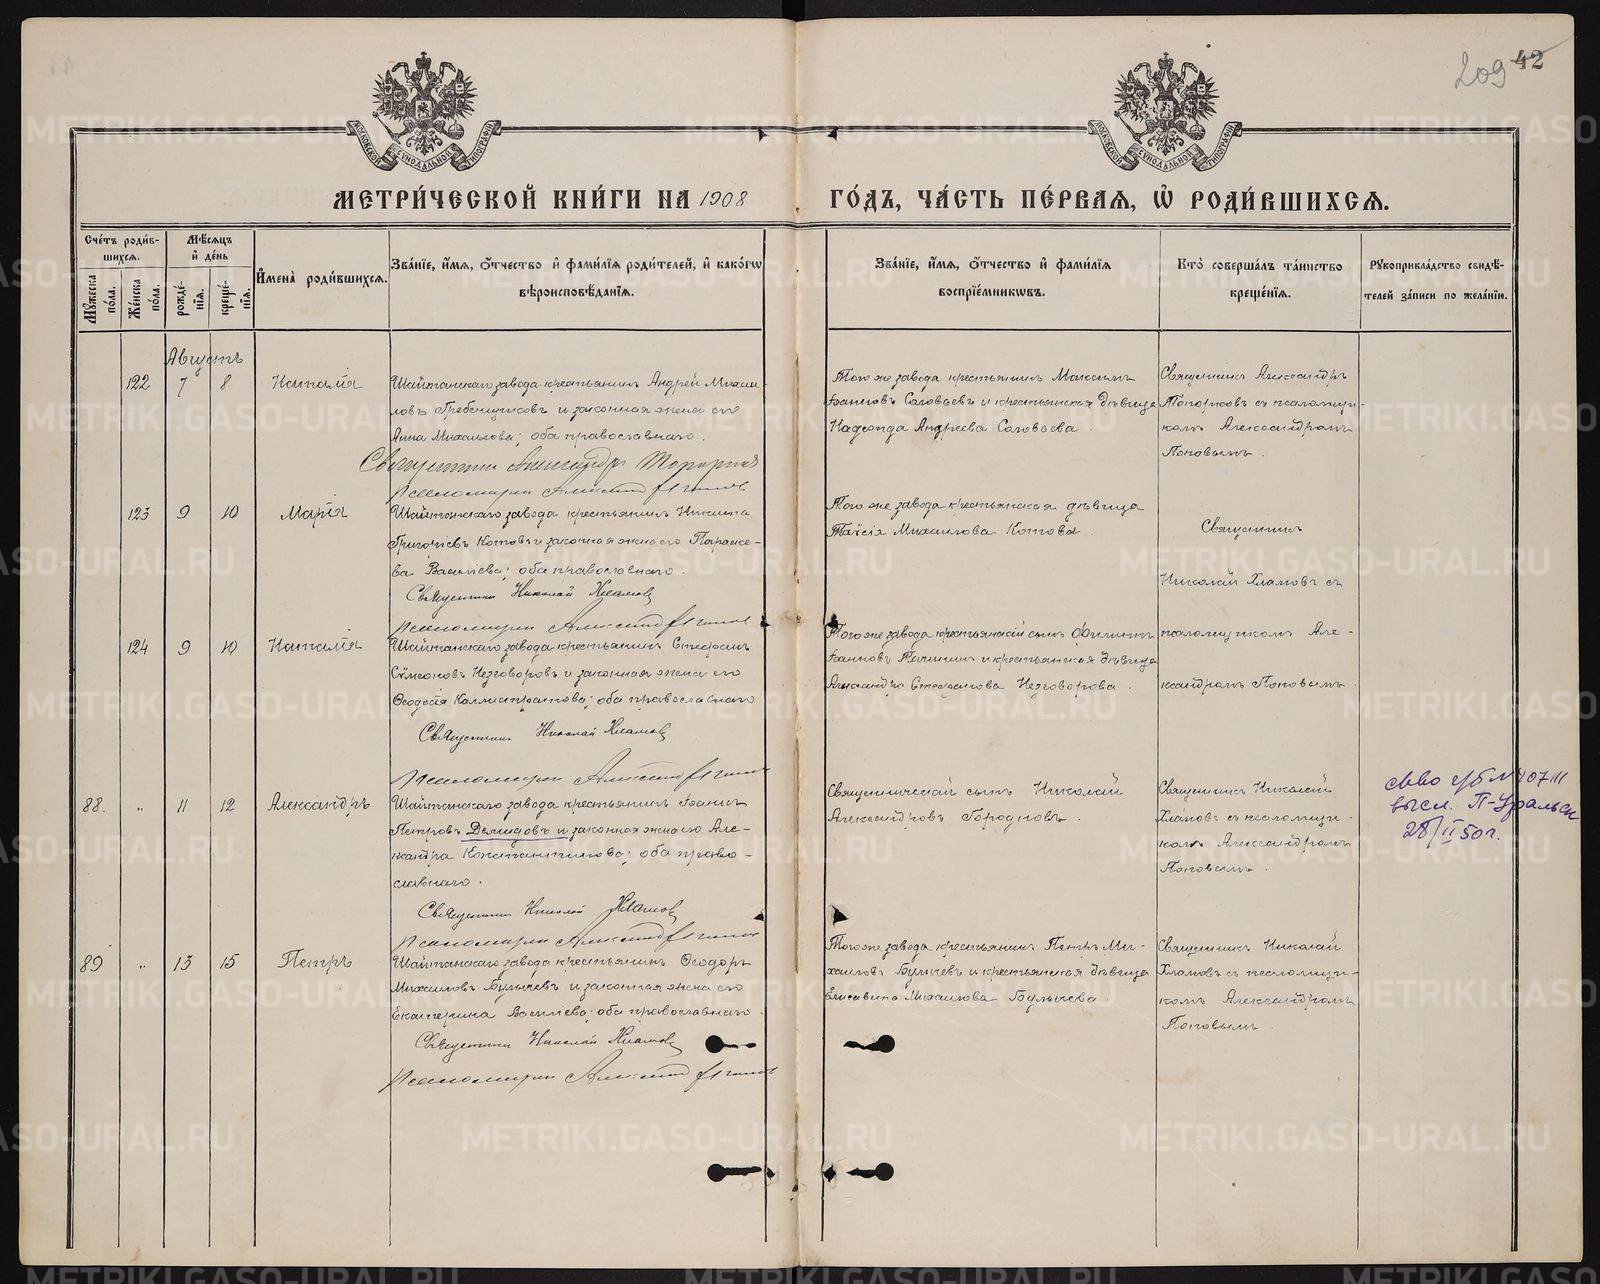 209 42
МОСКОВСКОЙ СѴНОДАЛЬНОЙ ТИПОГРАФІИ
МОСКОВСКОЙ СѴНОДАЛЬНОЙ ТИПОГРАФІИ
МЕТРИ́ЧЕСКОЙ КНИ́ГИ НА 1908
ГО́ДЪ, ЧА́СТЬ ПЕ́РВАѦ, Ѡ҆ РОДИ́ВШИХСѦ.
Сче́тъ роди́в-
шихсѧ.
Мꙋ́жеска
по́ла.
Же́нска
по́ла.
Мѣ́сѧцъ
и҆ де́нь
рожде́-
нїѧ.
креще́-
нїѧ.
И҆мена̀ роди́вшихсѧ.
Зва́нїе, и҆́мѧ, ѻ҆́тчество и҆ фами́лїѧ роди́телей, и҆ како́гѡ
вѣроисповѣ́данїѧ.
Зва́нїе, и҆́мѧ, ѻ҆́тчество и҆ фами́лїѧ
воспрїе́мникѡвъ.
Кто̀ соверша́лъ та́инство
креще́нїѧ.
Рꙋкоприкла́дство свидѣ́-
телей за́писи по жела́нїю.
Августъ
122 7 8 Наталія
Шайтанскаго завода крестьянинъ Андрей Михаи-
ловъ Гребенщиковъ и законная жена его
Анна Михаилова; оба православнаго.
Священникъ Александръ Топорковъ
Псаломщикъ Александръ Поповъ
Того же завода крестьянинъ Максимъ
Іоанновъ Соловьевъ и крестьянская дѣвица
Надежда Андреева Соловьева.
Священникъ Александръ
Топорковъ съ псаломщи-
комъ Александромъ
Поповымъ.
123 9 10 Марія
Шайтанскаго завода крестьянинъ Никита
Григорьевъ Котовъ и законная жена его Параске-
ва Васильева; оба православнаго.
Священникъ Николай Хламовъ
Псаломщикъ Александръ Поповъ
Того же завода крестьянская дѣвица
Таисія Михаилова Котова.
Священникъ
Николай Хламовъ съ
124 9 10 Наталія
Шайтанскаго завода крестьянинъ Стефанъ
Сѵмеоновъ Незговоровъ и законная жена его
Ѳеодосія Каллистратова; оба православнаго
Священникъ Николай Хламовъ
Псаломщикъ Александръ Поповъ
Того же завода крестьянскій сынъ Филиппъ
Іоанновъ и крестьянская дѣвица
Александра Стефанова Незговорова.
псаломщикомъ Але-
ксандромъ Поповымъ
88. „ 11 12 Александръ
Шайтанскаго завода крестьянинъ Іоаннъ
Петровъ Демидовъ и законная жена его Але-
ксандра Константинова; оба право-
славнаго.
Священникъ Николай Хламовъ
Псаломщикъ Александръ Поповъ
Священническій сынъ Николай
Александровъ Городковъ.
Священникъ Николай
Хламовъ съ псаломщи-
комъ Александромъ
Поповымъ.
св-во № 407111
высл. П-Уральск
28/II 50 г.
89 „ 13 15 Петръ
Шайтанскаго завода крестьянинъ Ѳеодоръ
Михаиловъ Булычевъ и законная жена его
Екатерина Васильева; оба православнаго.
Священникъ Николай Хламовъ
Псаломщикъ Александръ Поповъ
Того же завода крестьянинъ Петръ Ми-
хаиловъ Булычевъ и крестьянская дѣвица
Елисавета Михаилова Булычева.
Священникъ Николай
Хламовъ съ псаломщи-
комъ Александромъ
Поповымъ.
METRIKI.GASO-URAL.RU